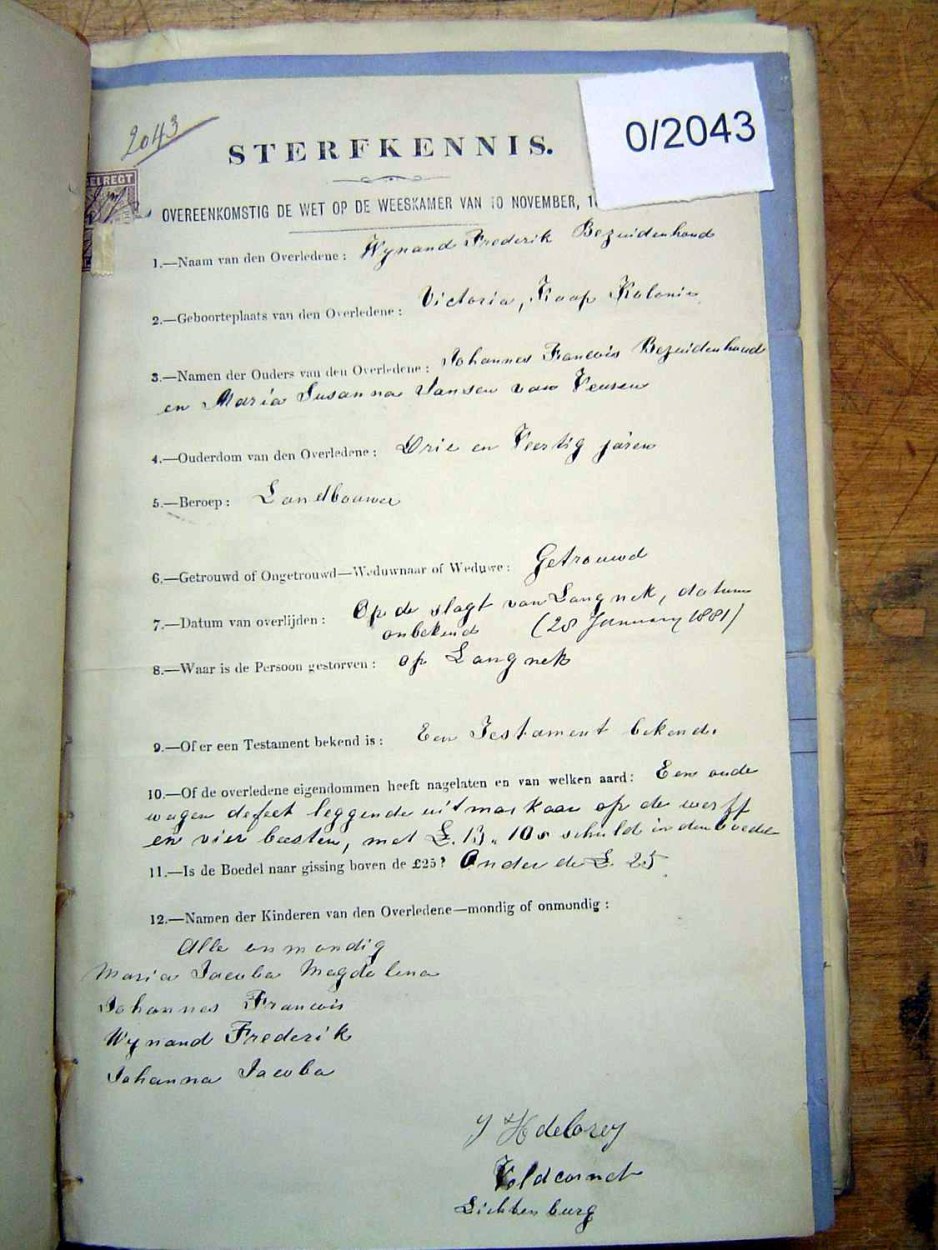 2043
0/2043
STERFKENNIS.
OVEREENKOMSTIG DE WET OP DE WEESKAMER VAN 10 NOVEMBER, 1
1.—Naam van den Overledene: Wynand Frederik Bezuidenhoud
2.—Geboorteplaats van den Overledene: Victoria, Kaap Kolonie
3.—Namen der Ouders van den Overledene: Johannes Francois Bezuidenhoud
en Maria Susanna Jansen van Veuren
4.—Ouderdom van den Overledene: Drie en Veertig jaren
5.—Beroep: Landbouwer
6.—Getrouwd of Ongetrouwd—Weduwnaar of Weduwe: Getrouwd
7.—Datum van overlijden: Op de slagt van Langnek, datum
onbekend (28 January 1881)
8.—Waar is de Persoon gestorven: op Langnek
9.—Of er een Testament bekend is: Een Testament bekend.
10.—Of de overledene eigendommen heeft nagelaten en van welken aard: Een oude
wagen defect leggende uit malkaar op de werff
en vier beesten, met £.13. 10s schuld in den boedel
11.—Is de Boedel naar gissing boven de £25? Onder de £ 25
12.—Namen der Kinderen van den Overledene—mondig of onmondig:
Alle onmondig
Maria Jacoba Magdalena
Johannes Francois
Wynand Frederik
Johanna Jacoba
J H de la Rey
Veldcornet
Lichtenburg